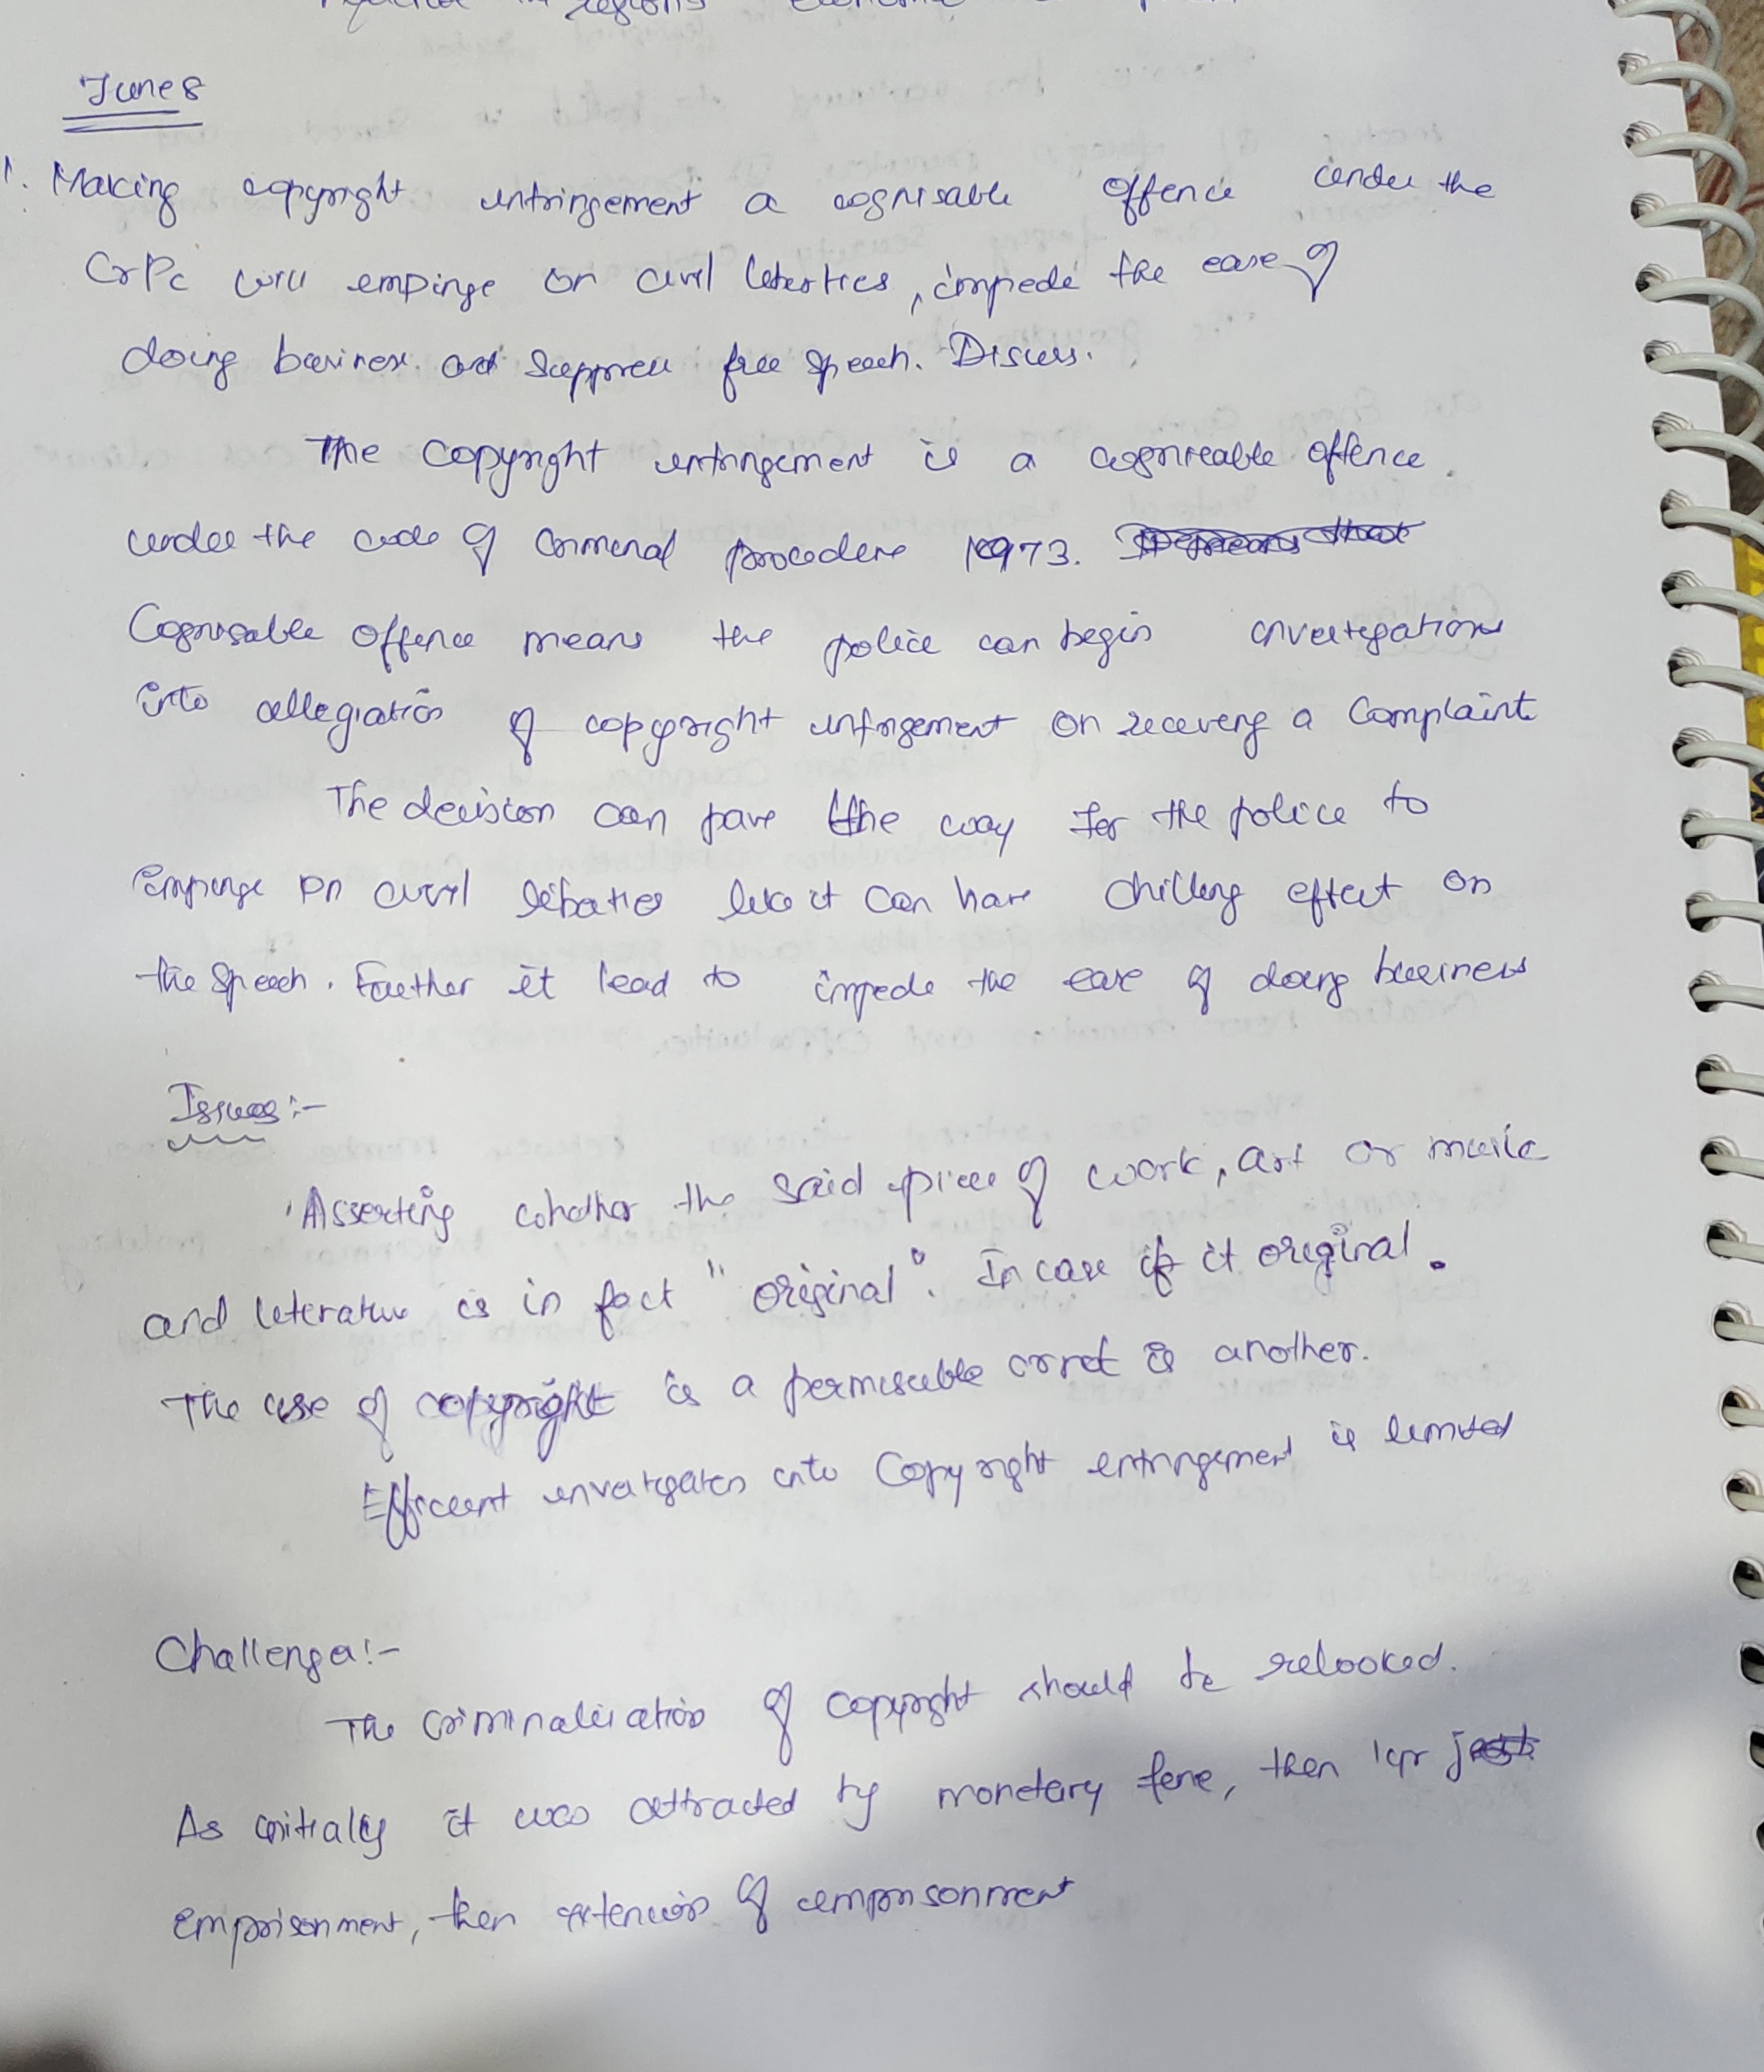 regions
June 8
1. Making copyright intringement a cognisable offence under the
CrPc will empinge on civil liberties, impede the ease of
doing business and suppress free speech. Discuss.
The copyright intringement is a cognisable offence.
under the code of criminal procedure 1973.
Cognisable offence means the police can begin investigations
into allegiation of copyright infrigement on receiving a complaint
The decision can pave the way for the police to
empinge on civil libaties like it can have chilling effect on
the speech. Further it lead to impede the ease of doing business
Issues:-
Asserting whether the said piece of work, art or music
and literature is in fact "original". In case if it original.
The use of copyright is a permissible or not is another.
Efficient investigation into copyright intringement is limited
Challenge:-
The criminalisation of copyright should be relooked.
As initially it was attracted by monetary fine, then 1 yr
emprisonment, then extension of imprisonment